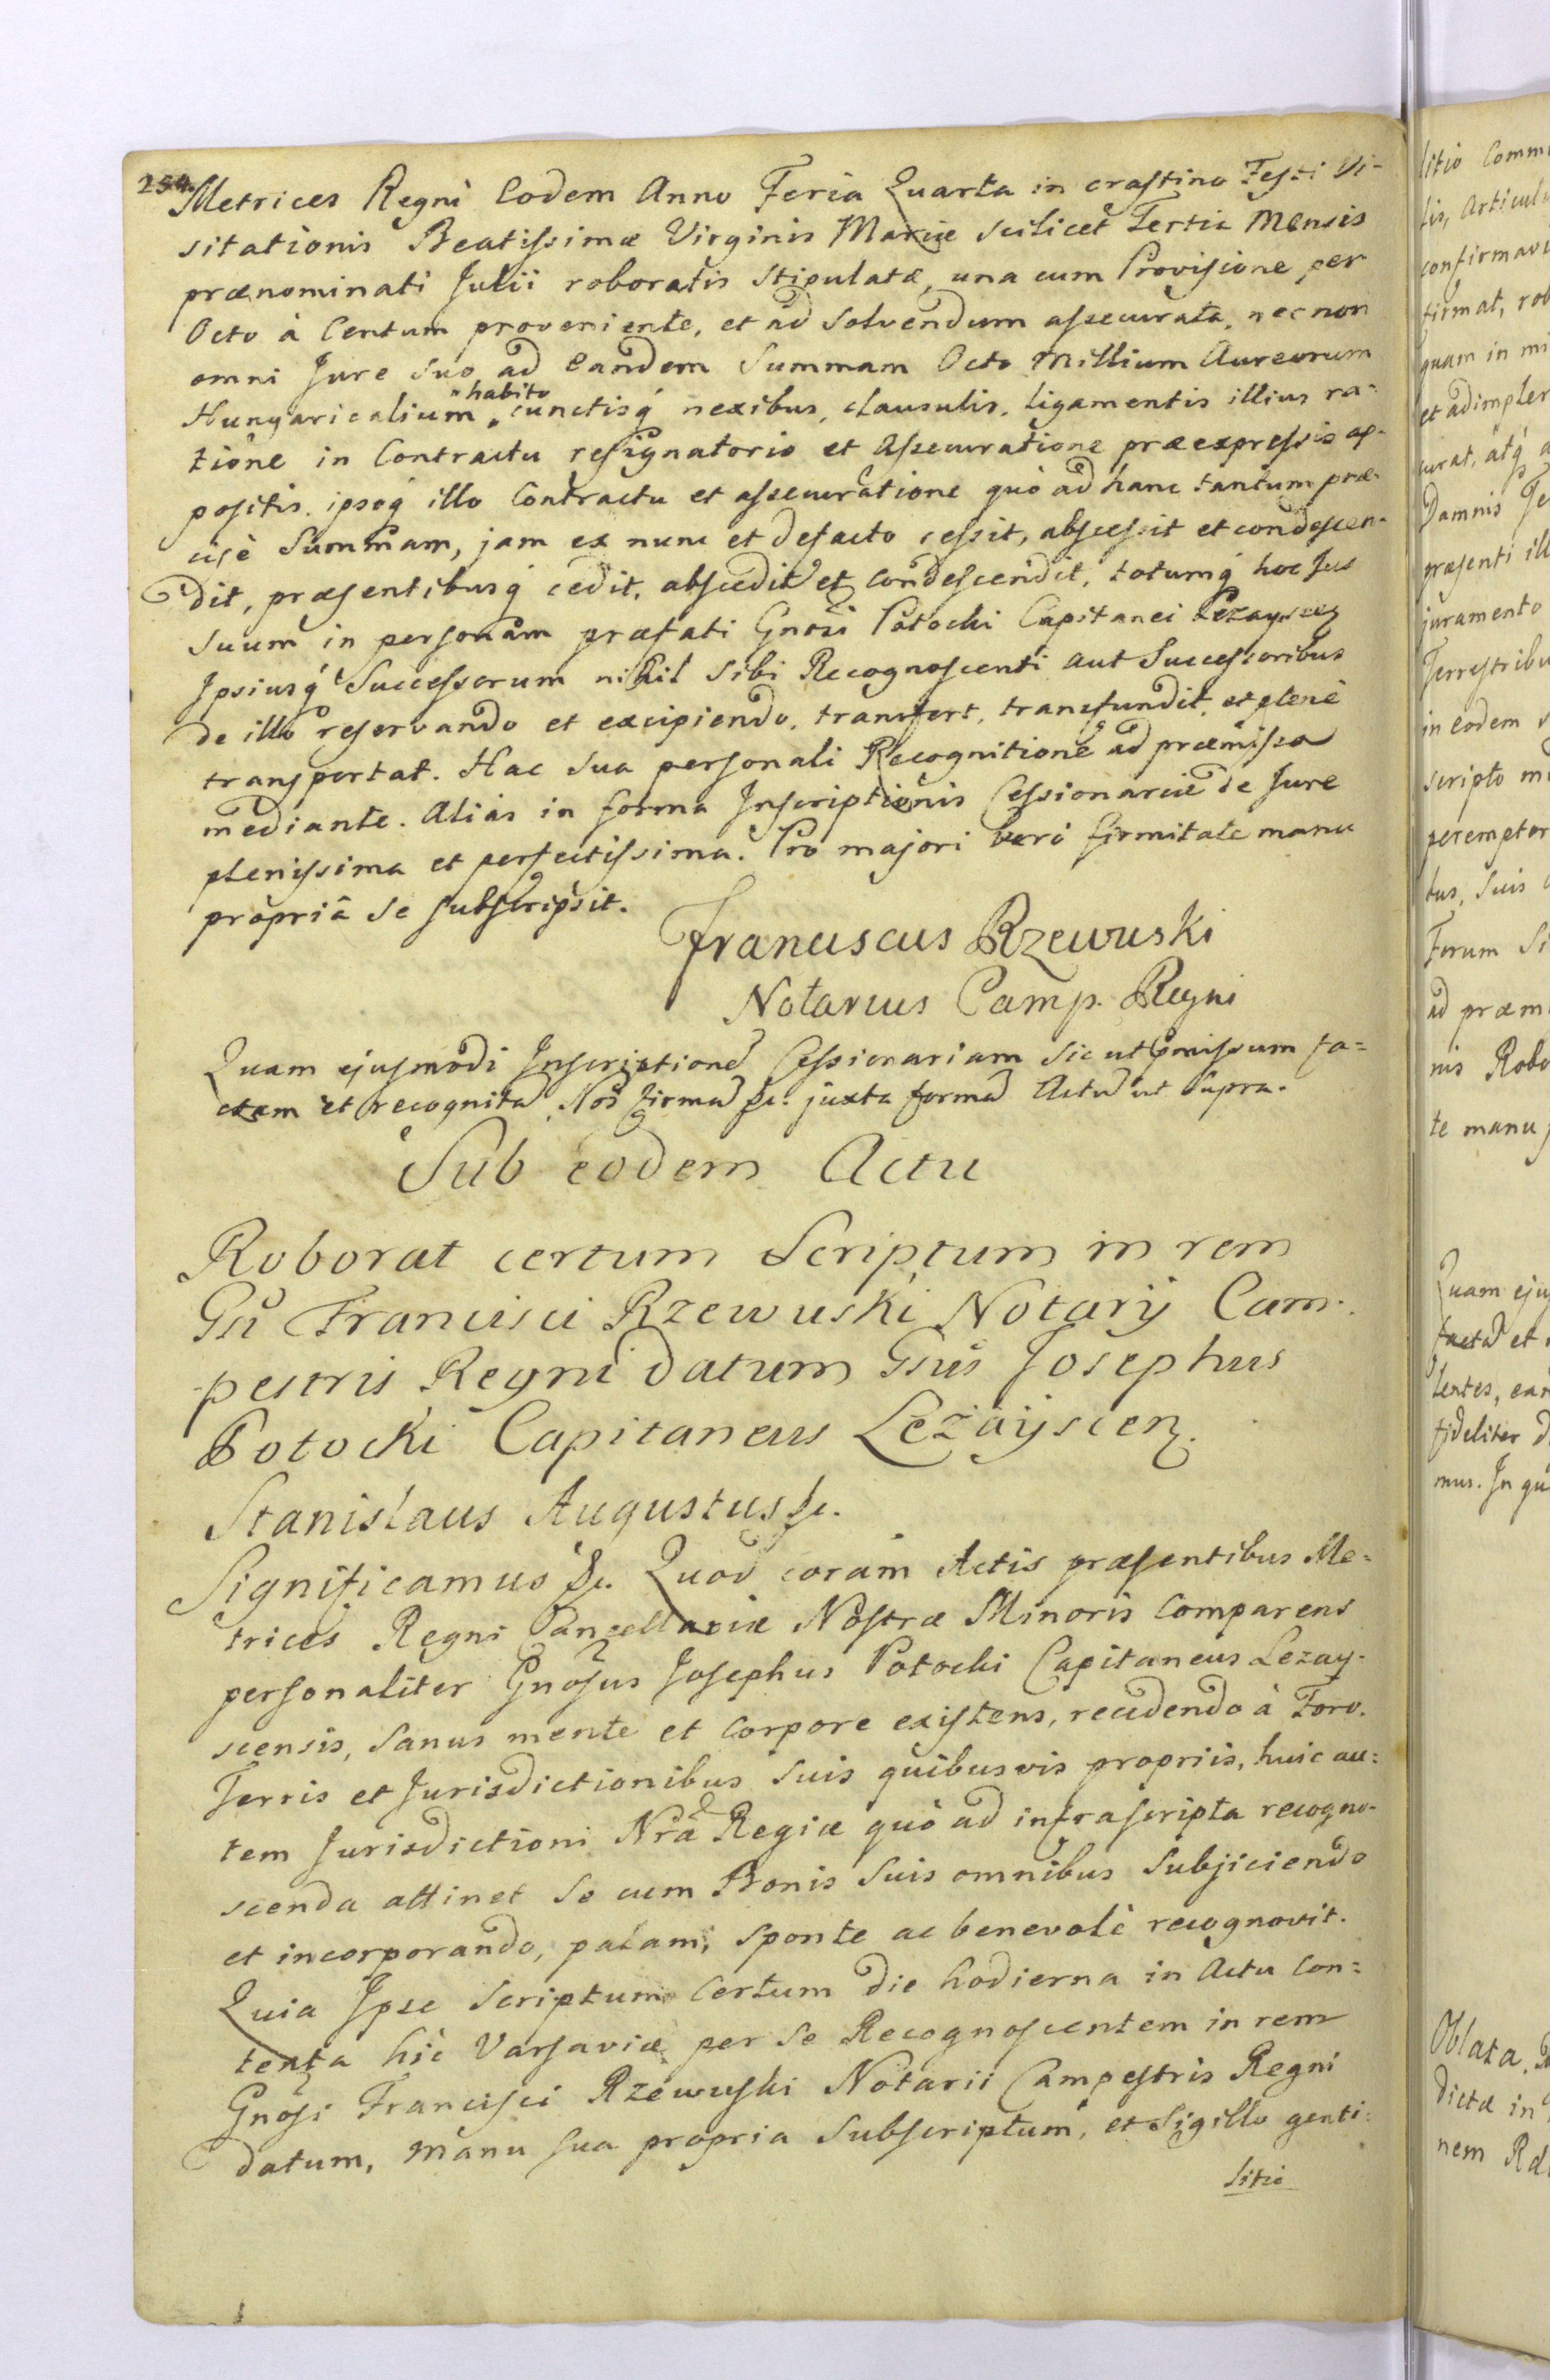 254.
Metrices Regni Eodem Anno Feria Quarta in crastino Festi Vi-
sitationis Beatissimæ Virginis Mariæ scilicet Tertia Mensis
prænominati Julii roboratis stipulatæ, una cum Provisione per
Octo à Centum proveniente, et ad solvendum assecurata, nec non
omni Jure suo ad eandem Summam Octo Millium Aureorum
habito
Hungaricalium, cunctisq́ nexibus, clausulis, ligamentis illius ra-
tione in Contractu resignatorio et Assecuratione præexpressis ap-
positis, ipsoq́ illo Contractu et assecuratione quò ad hanc tantum præ-
cisè Summam, jam ex nunc et defacto cessit, abscessit et condescen-
dit, præsentibusq́ cedit, abscedit et condescendit, totumq́ hoc Jus
suum in personam præfati Gnosi Potocki Capitanei Leżayscen
Ipsiusq́ Successorum nihil sibi Recognoscenti aut Successoribus
de illo reservando et excipiendo, transfert, transfundit, et plenè
transportat. Hac sua personali Recognitione ad præmissa
mediante. Aliàs in forma Inscriptionis Cessionariæ de Jure
plenissima et perfectissima. Pro majori verò firmitate manu
propriâ se subscripsit.
Franciscus Rzewuski
Notarius Camp. Regni
Quam ejusmodi Inscriptione Cessionariam sic ut pmissum fa=
ctam et recognita Nos firma &c. juxta forma Actu ut supra.
Sub eodem Actu
Roborat certum Scriptum in rem
Gsi Francisci Rzewuski Notarÿ Cam-
pestris Regni datum Gsus Josephus
Potocki Capitaneus Leżaÿscen.
Stanislaus Augustus &c.
Significamus &c. Quod coram Actis præsentibus Me=
trices Regni Cancellariæ Nostræ Minoris Comparens
personaliter Gnosus Josephus Potocki Capitaneus Lezay-
scensis, Sanus mente et Corpore existens, recedendo à Foro,
Terris et Jurisdictionibus suis quibusvis propriis, huic au=
tem Jurisdictioni Nræ Regiæ quò ad infrascripta recogno-
scenda attinet se cum Bonis suis omnibus Subjiciendo
et incorporando, palam, sponte ac benevolè recognovit.
Quia Ipse Scriptum Certum die hodierna in Actu Con=
tenta hìc Varsaviæ per se Recognoscentem in rem
Gnosi Francisci Rzewuski Notarii Campestris Regni
datum, manu sua propria Subscriptum, et Sigillo genti=
litio
litio Comm
lis, Articul
confirmavi
firmat, rob
quam in mi
et adimpler
curat, atq́ a
Damnis Te
præsenti ill
juramento
Terrestribu
in eodem
scripto m
peremptor
tus, suis
Forum Si
ad præm
nis Robo
te manu
Quam ejus
facta et
tentes, ean
fideliter d
mus. In qu
Oblata
dictæ in
nem Rd